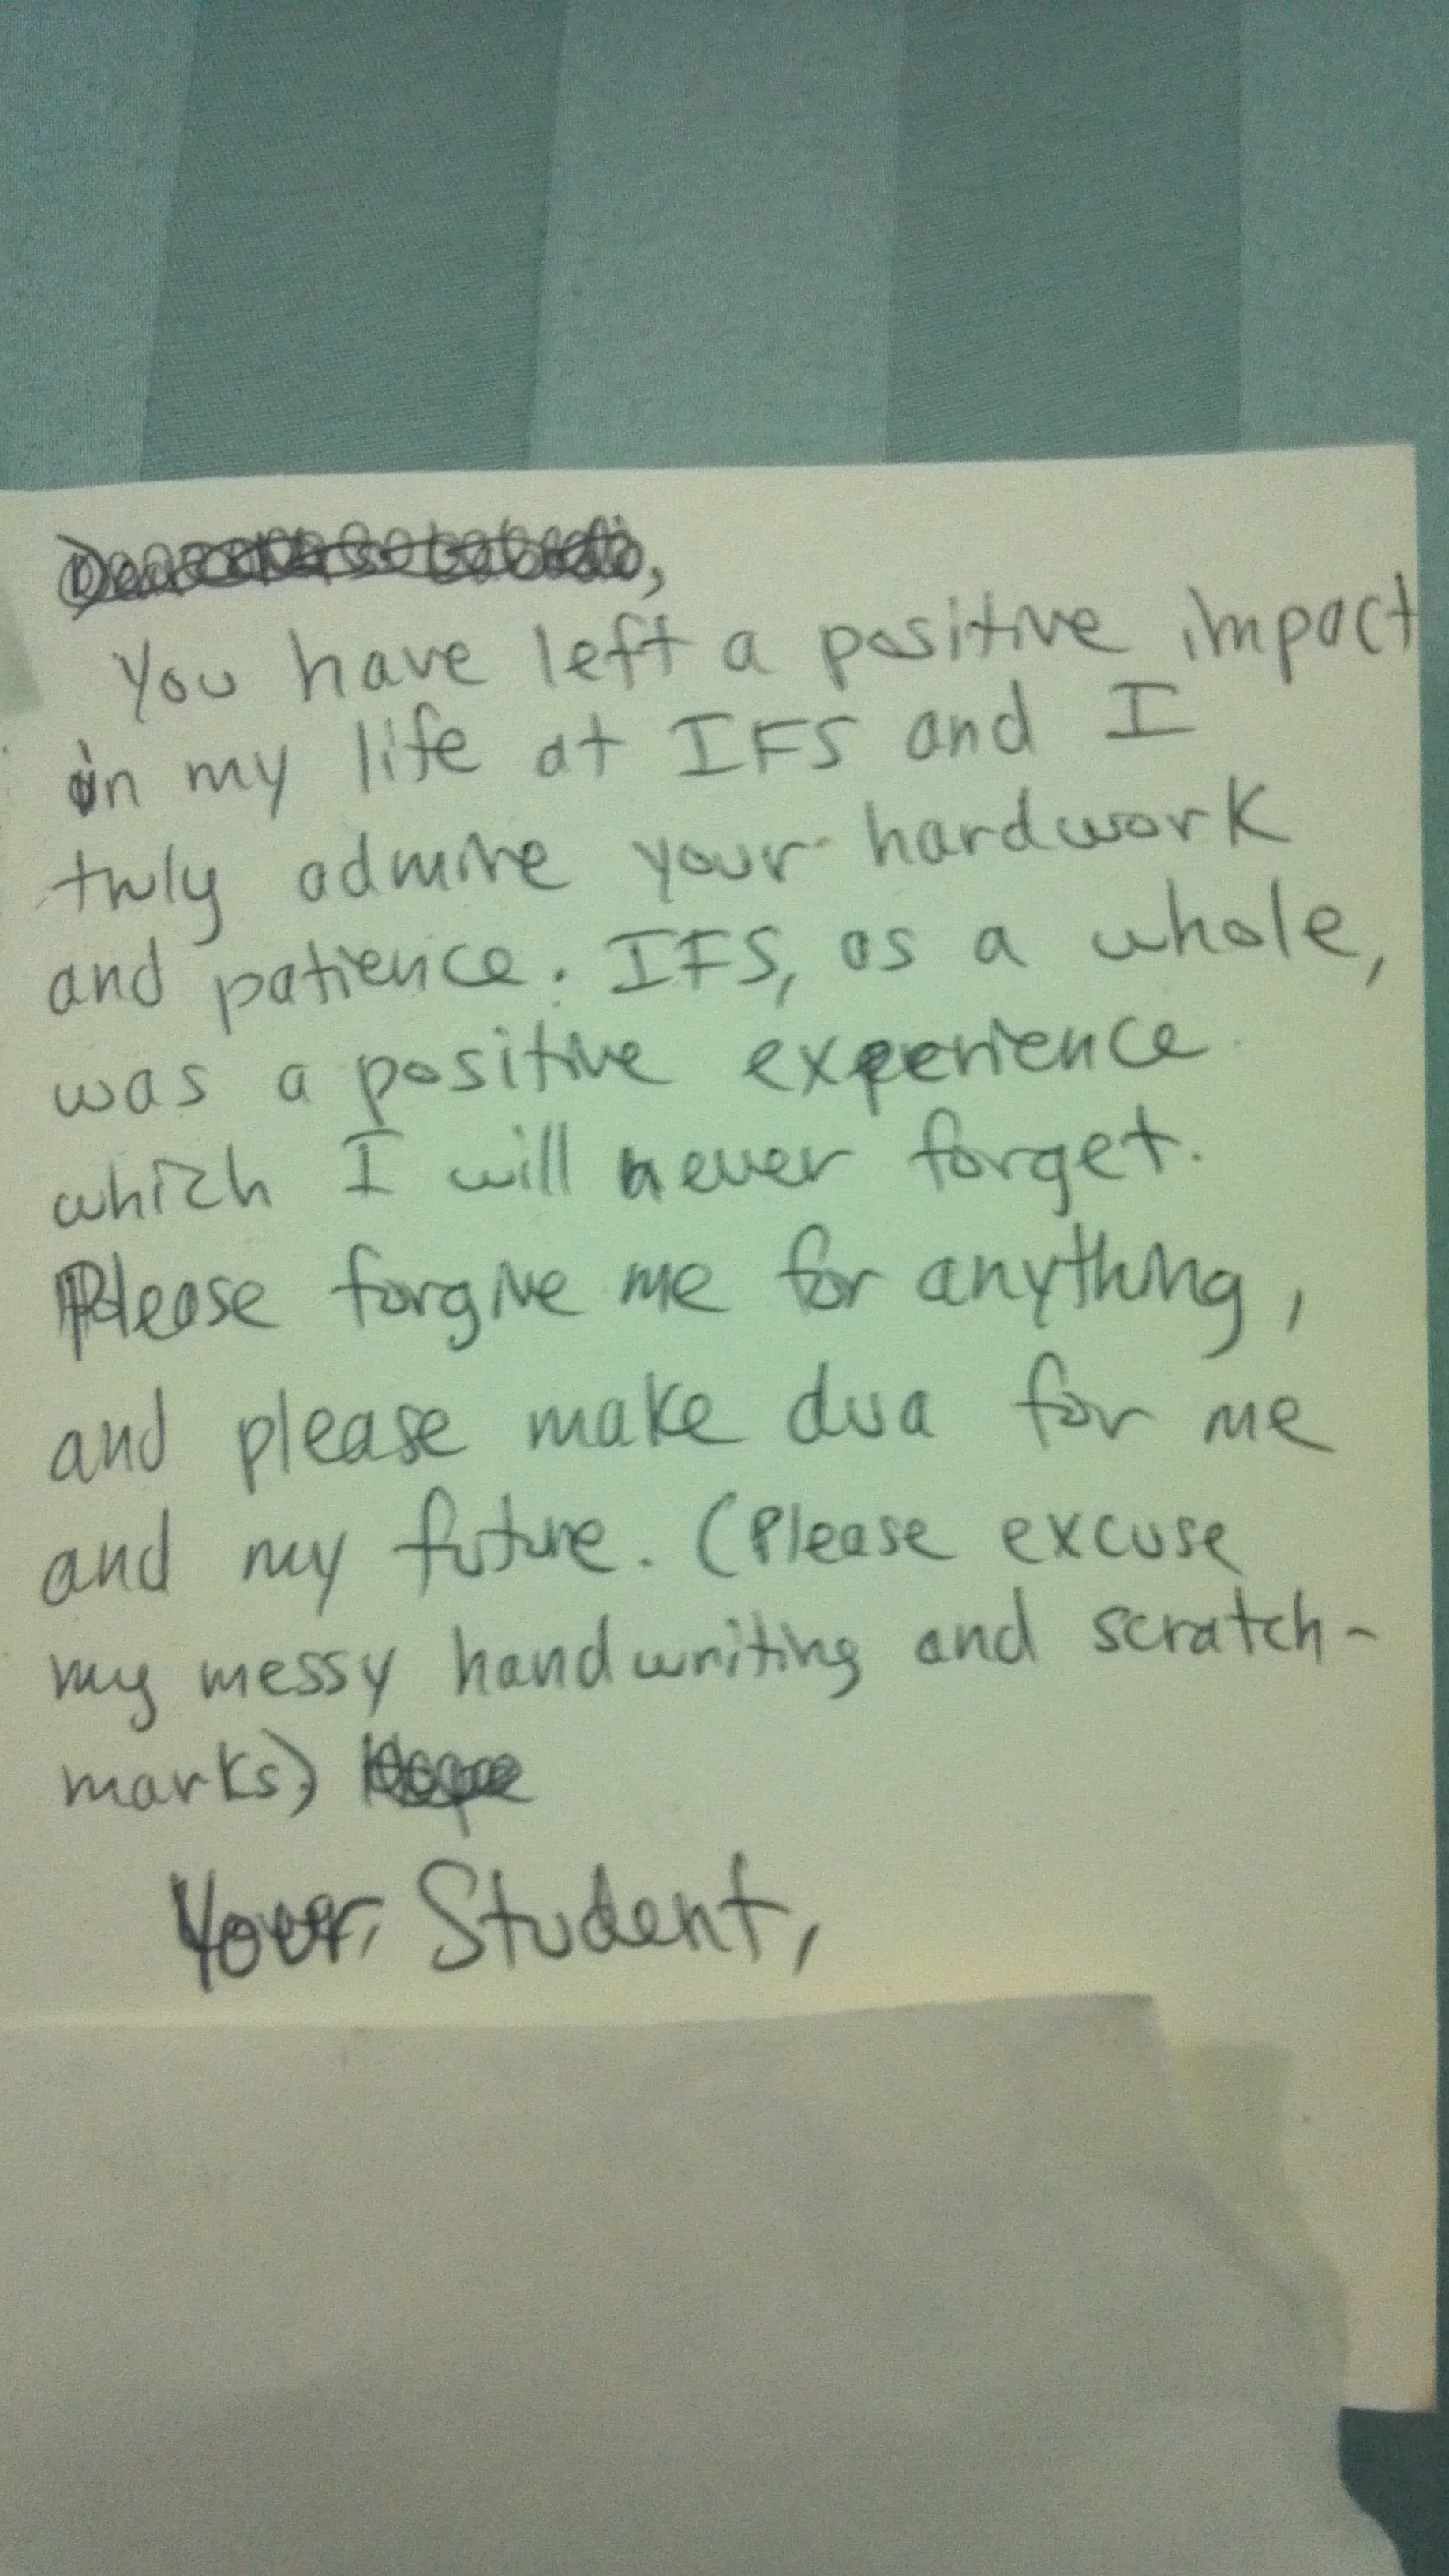 You have left a positive impact
in my life at IFS and I
truly admire your hardwork
and patience. IFS, as a whole,
was a positive experience
which I will never forget.
Please forgive me for anything,
and please make dua for me
and my future. (Please excuse
my messy handwriting and scratch-
marks)
Your Student,